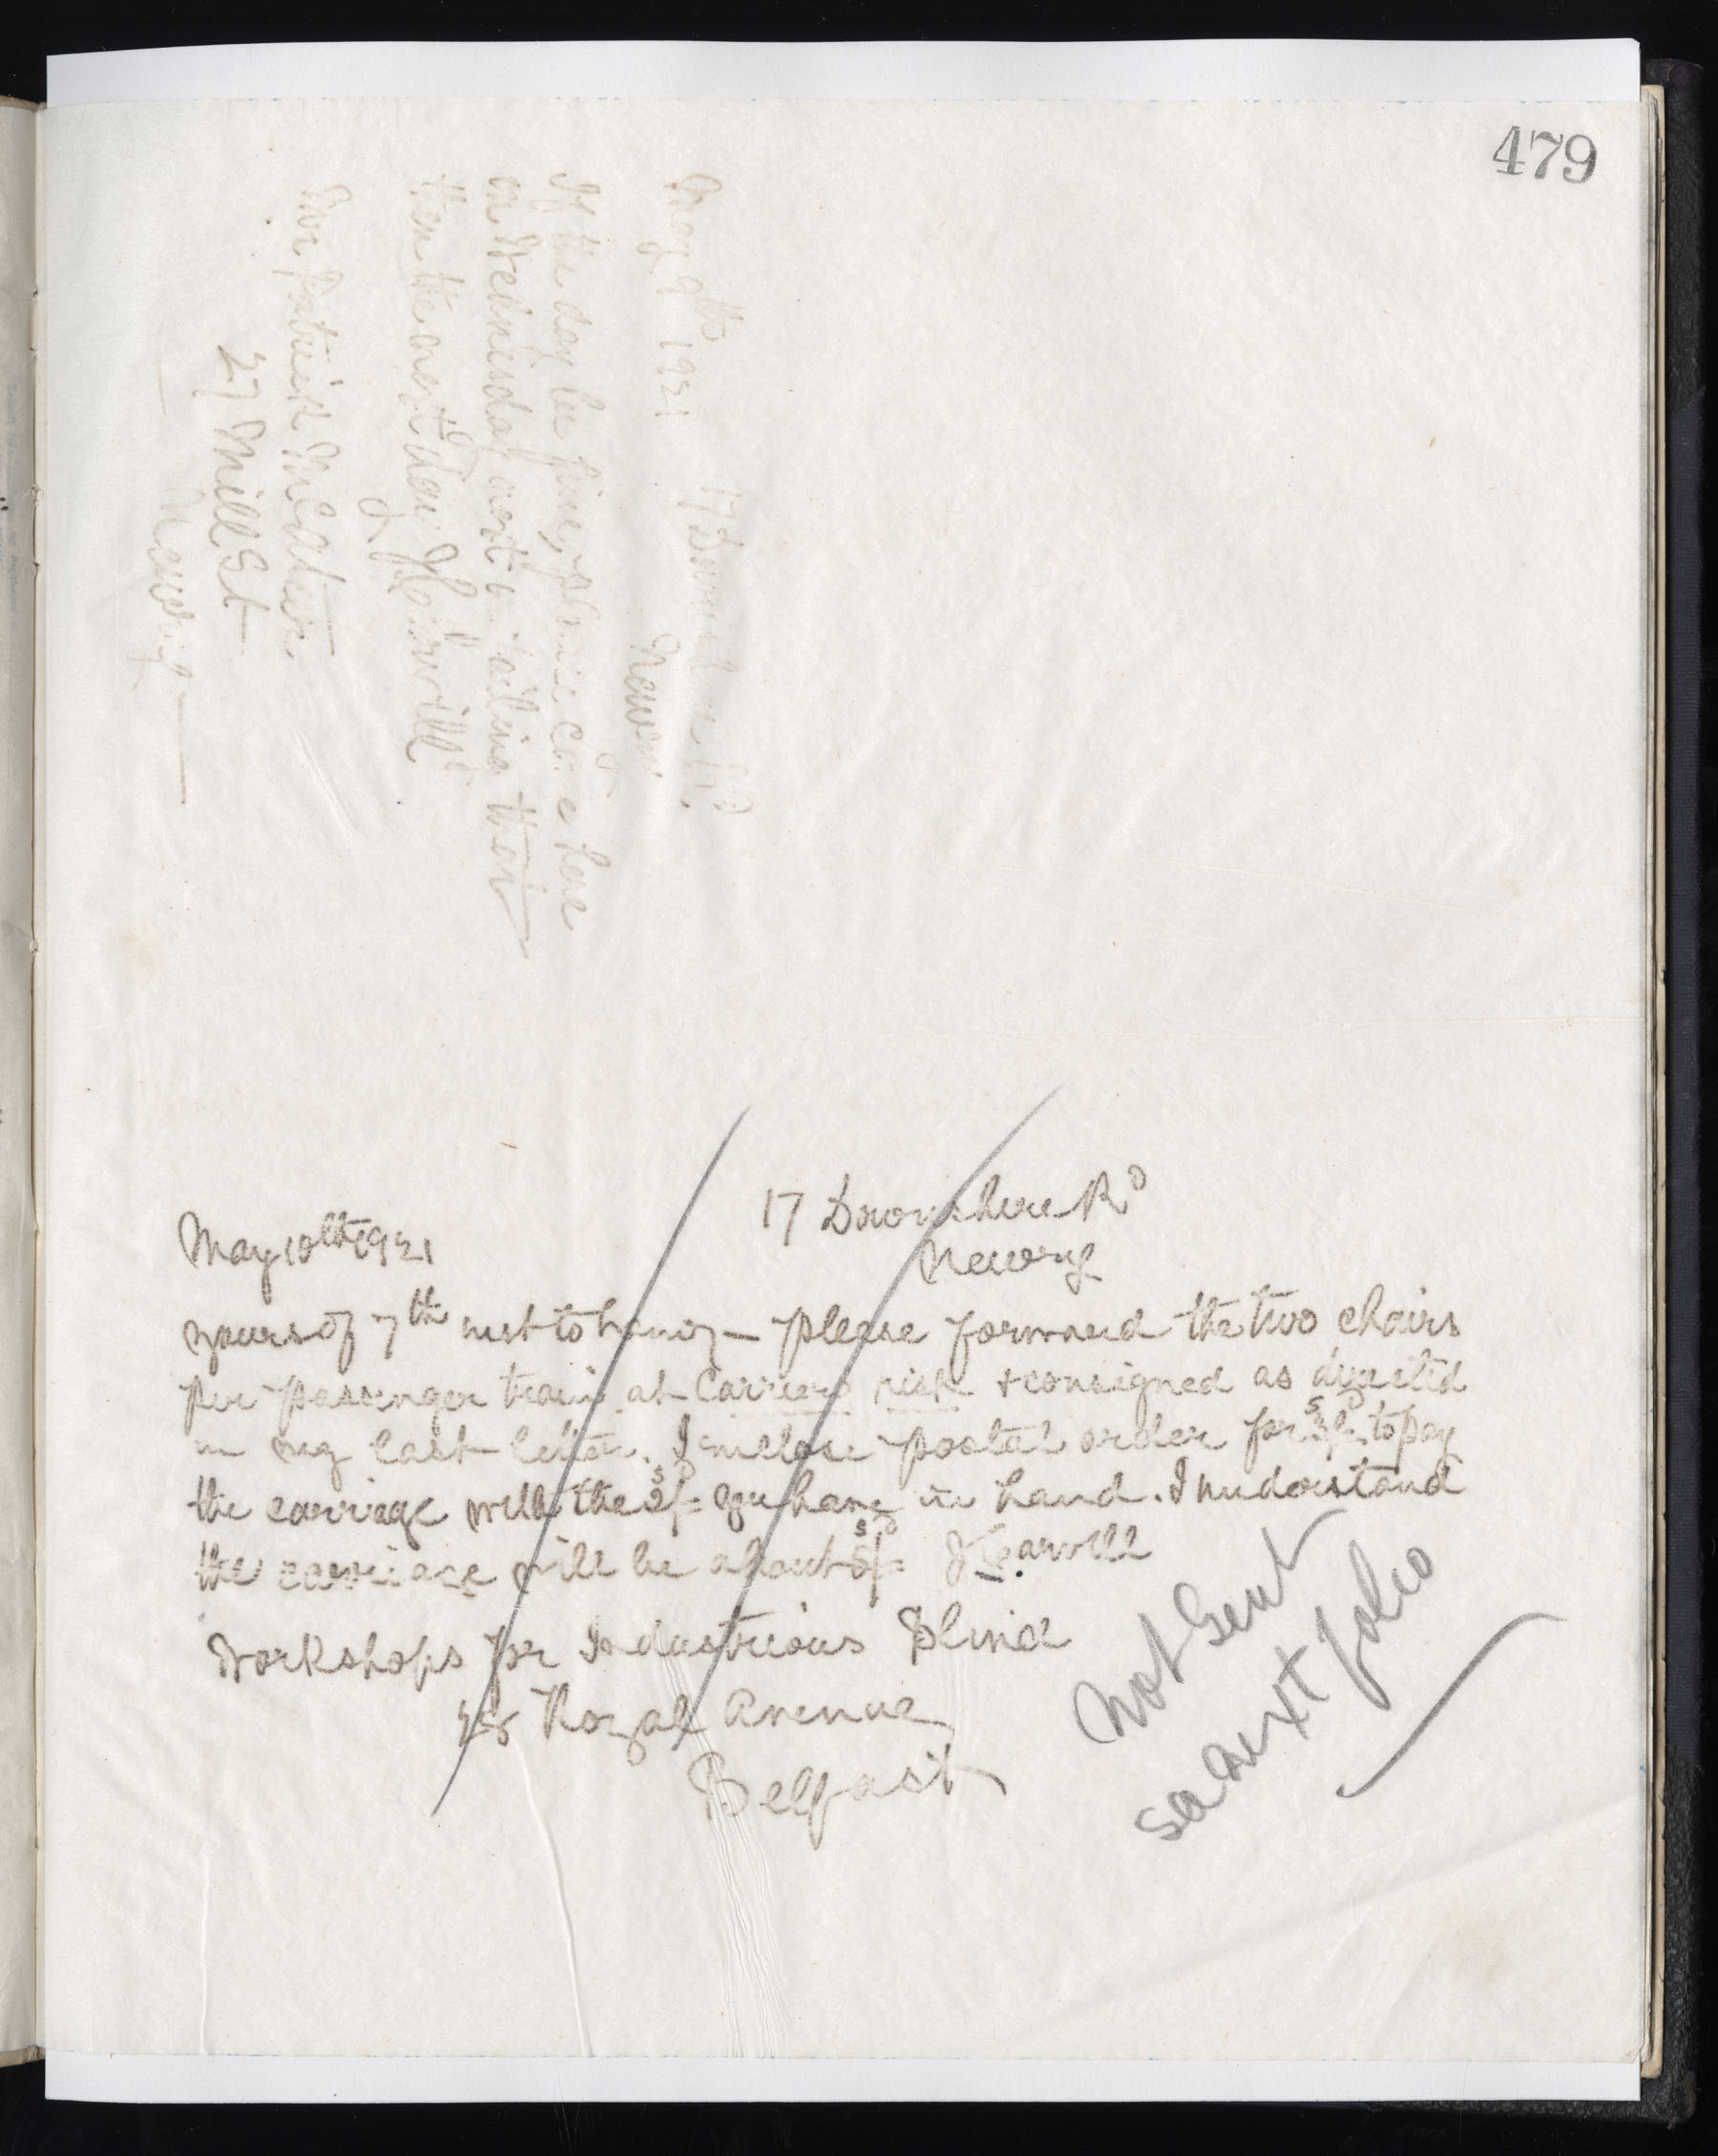 479
17 Downshire Rd
May 9th 1921
Newry
If the day be fine, please come here
on Wednesday next or failing that
then the next day J H Carvill
Mr Patrick
27 Mill St
Newry
17 Downshire Rd
May 10th 1921
Newry
yours of 7th inst to hand — please forward the two chairs
per passenger train at Carriers risk + consigned as directed
in my last letter. I inclose postal order for 3/= to pay
the carriage with the 2/= you have in hand. I understand
the carriage will be about 5/= J Carvill
Workshops for Industrious Blind
Royal Avenue
Belfast
Not Sent
see next folio